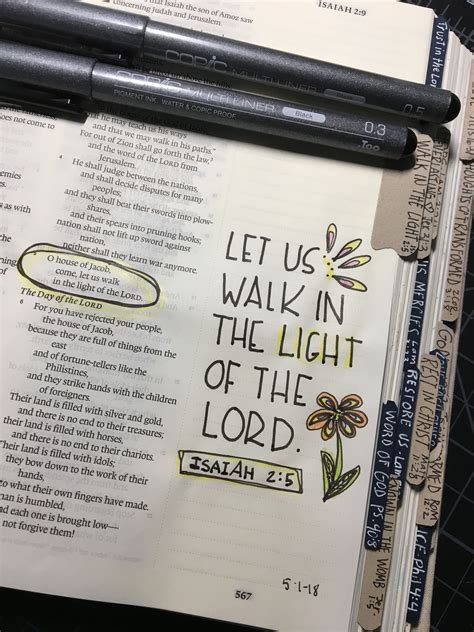 that Isaiah the son of Amoz saw
concerning Judah and Jerusalem.
ISAIAH 2:9
COPIC MULTILINER
0.5
COPIC MULTILINER
PIGMENT INK · WATER & COPIC PROOF
Black
0.3
.Too
that he may teach us his ways
and that we may walk in his paths.”
For out of Zion shall go forth the law,
and the word of the LORD from
Jerusalem.
4 He shall judge between the nations,
and shall decide disputes for many
peoples;
and they shall beat their swords into plow-
shares,
and their spears into pruning hooks;
nation shall not lift up sword against
nation,
neither shall they learn war anymore.
O house of Jacob,
come, let us walk
in the light of the LORD.
The Day of the LORD
6 For you have rejected your people,
the house of Jacob,
because they are full of things from the
east
and of fortune-tellers like the
Philistines,
and they strike hands with the children
of foreigners.
Their land is filled with silver and gold,
and there is no end to their treasures;
their land is filled with horses,
and there is no end to their chariots.
Their land is filled with idols;
they bow down to the work of their
hands,
to what their own fingers have made.
man is humbled,
and each one is brought low—
not forgive them!
LET US
WALK IN
THE LIGHT
OF THE
LORD.
ISAIAH 2:5
5-1-18
567
Trust in the Lor
WALK IN THE LIGHT
HIS MERCIES Lam
RESTORE US-Lam
REST IN CHRIST
WORD OF GOD PS:
IN THE WOMB Jer
1:5
ICF-Phil 4:4